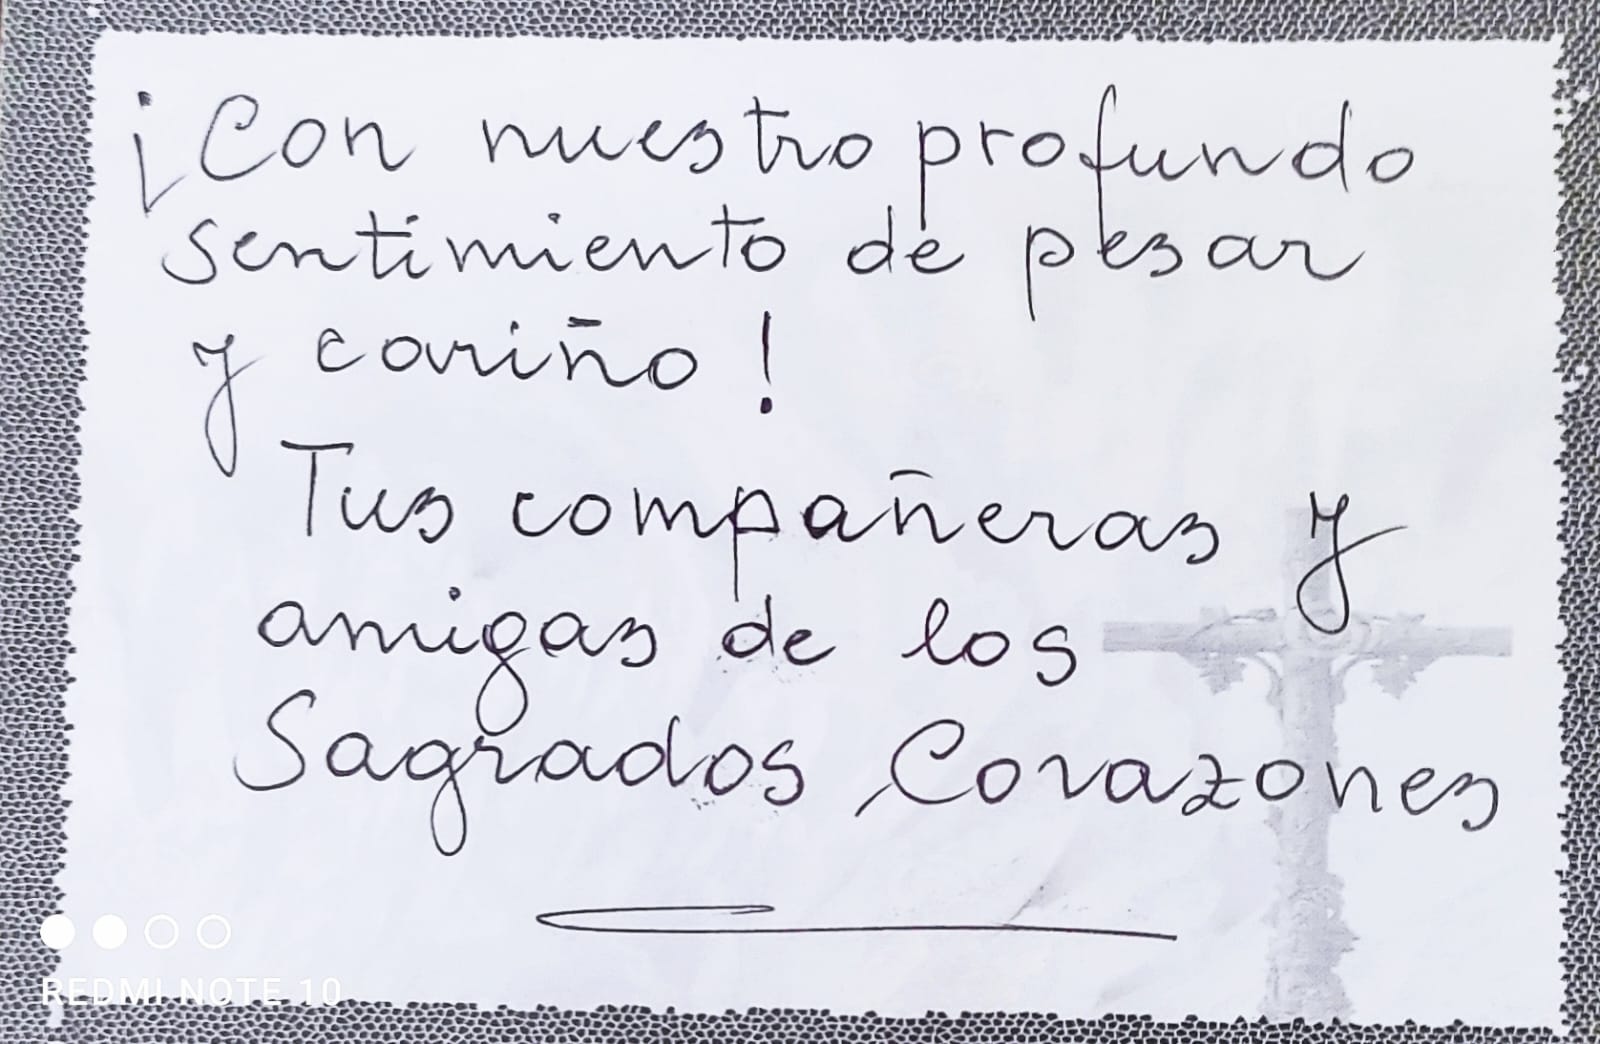 ¡Con nuestro profundo
sentimiento de pesar
y cariño!
Tus compañeras y
amigas de los
Sagrados Corazones
REDMI NOTE 10